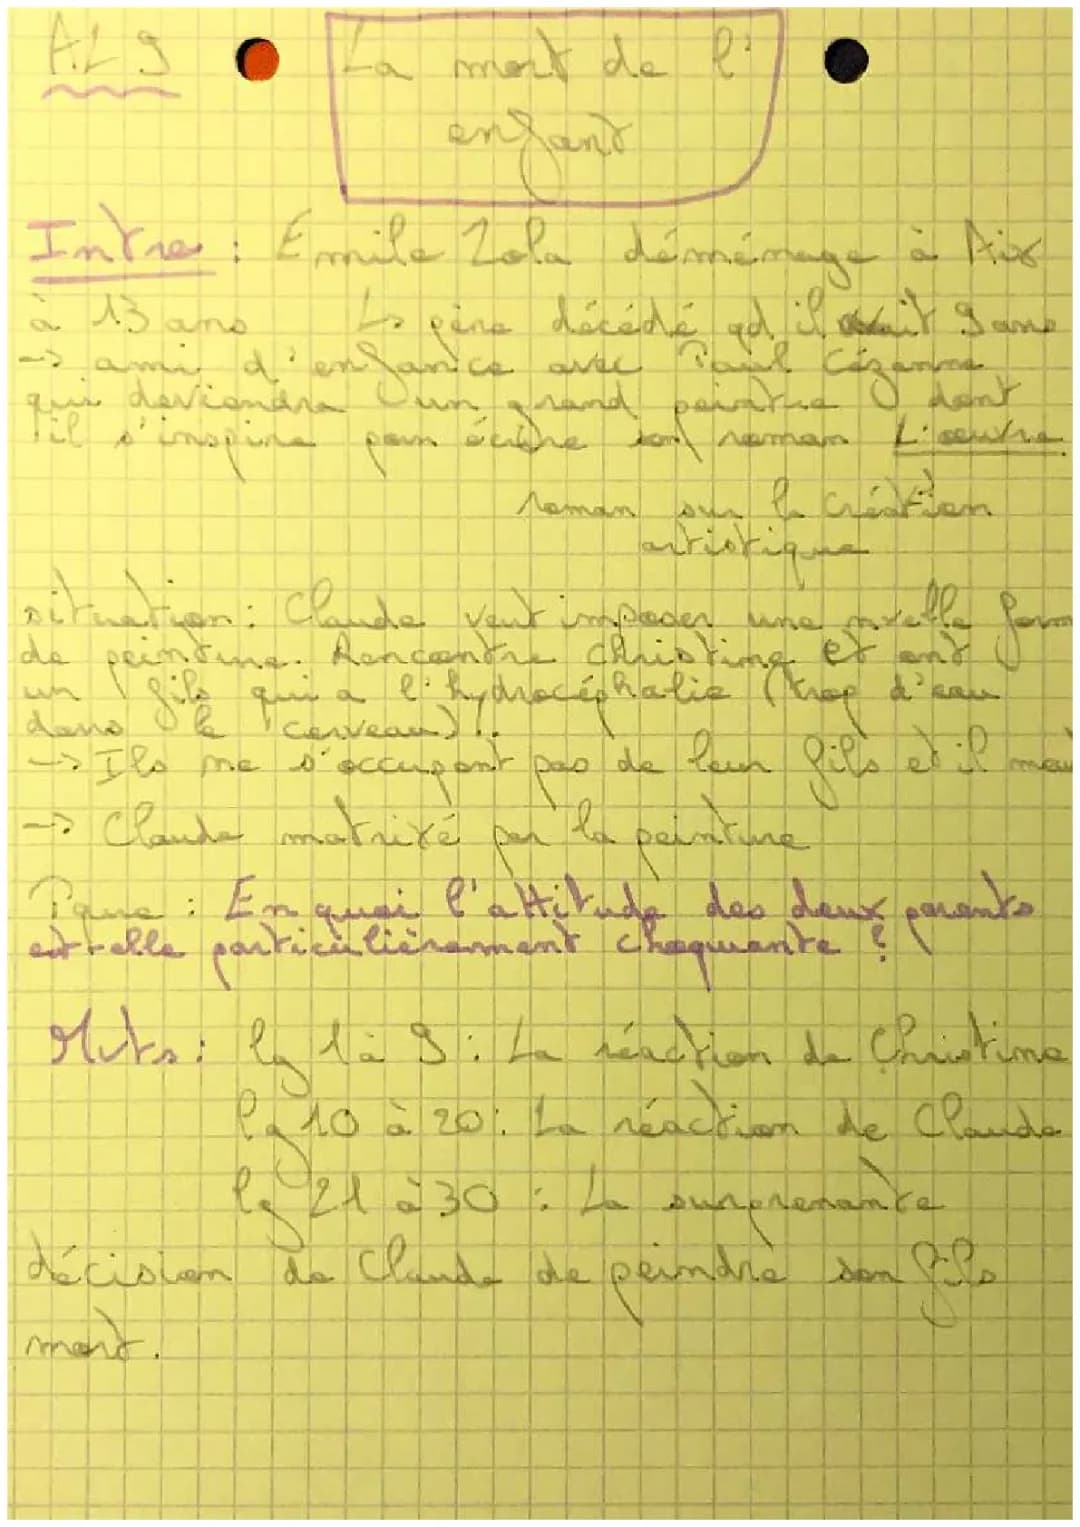 AL 9
La mort de l'
enfant
Intro : Emile Zola déménage à Aix
à 13 ans ↳ père décédé qd il avait 9 ans
-> ami d'enfance avec Paul Cézanne
qui deviendra un grand peintre dont
il s'inspire pour écrire son roman L'œuvre
roman sur la création
artistique
situation : Claude veut imposer une nvelle form
de peinture. Rencontre Christine et ont
un fils qui a l'hydrocéphalie (trop d'eau
dans le cerveau).
-> Ils ne s'occupent pas de leur fils et il meu
-> Claude matrixé par la peinture
Pque : En quoi l'attitude des deux parents
est-elle particulièrement choquante ?
Mvts : lg 1 à 9 : La réaction de Christine
lg 10 à 20 : La réaction de Claude
lg 21 à 30 : La surprenante
décision de Claude de peindre son fils
mort.